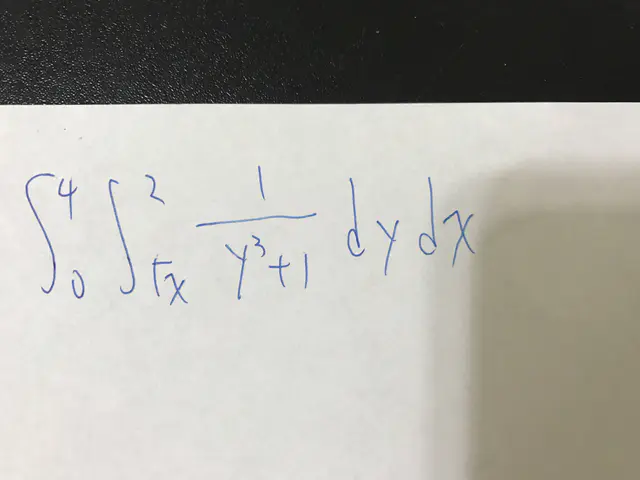 ∫₀⁴ ∫_{√x}² 1/(y³+1) dy dx